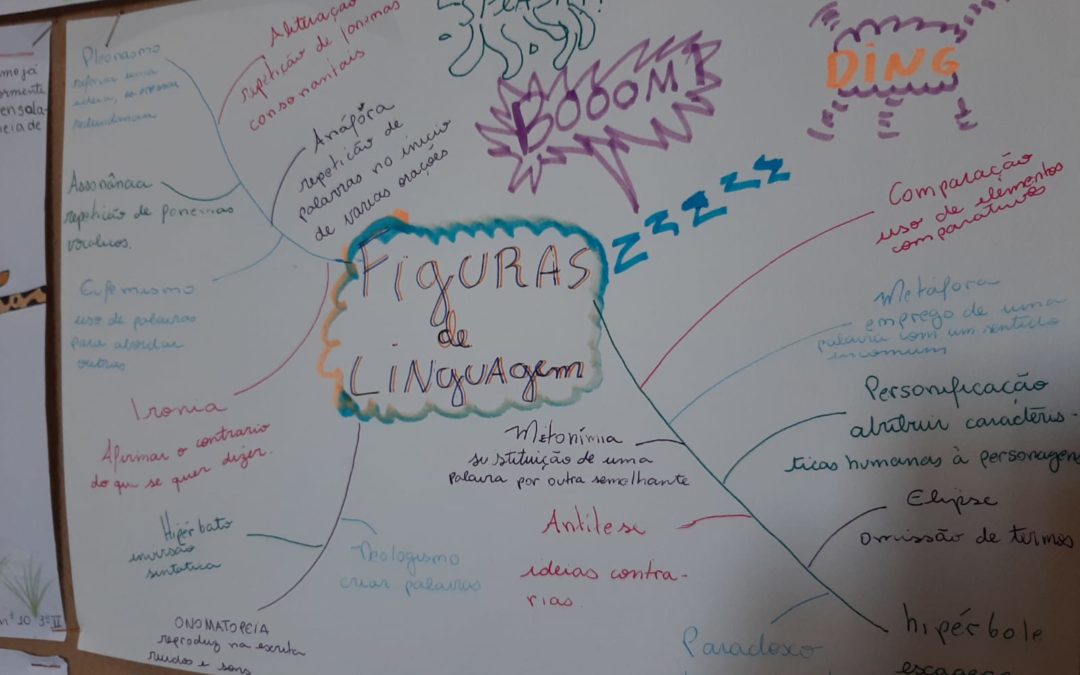 SPLASH!
BOOOM!
DING
ZZZZZZ
FigURAS
de
LiNguAgem
Pleonasmo
redundancia
Aliteração
repetição de fonemas
consonantais
Anáfora
repetição de
palavras no inicio
de varias orações
Assonância
repetição de fonemas
vocalicos.
Eufemismo
uso de palavras
para abordar
outras
Ironia
Afirmar o contrario
do que se quer dizer.
Hipérbato
inversão
sintatica
Neologismo
criar palavras
ONOMATOPEIA
reproduz na escrita
ruidos e sons
Comparação
uso de elementos
comparativos
Metáfora
emprego de uma
palavra com um sentido
incomum
Personificação
atribuir caractéris-
ticas humanas à personagens
Metonímia
su stituição de uma
palavra por outra semelhante
Antitese
ideias contra-
rias.
Elipse
omissão de termos
Paradoxo
hipérbole
mo já
ormente
ensala
neia de
nº 10 3º II